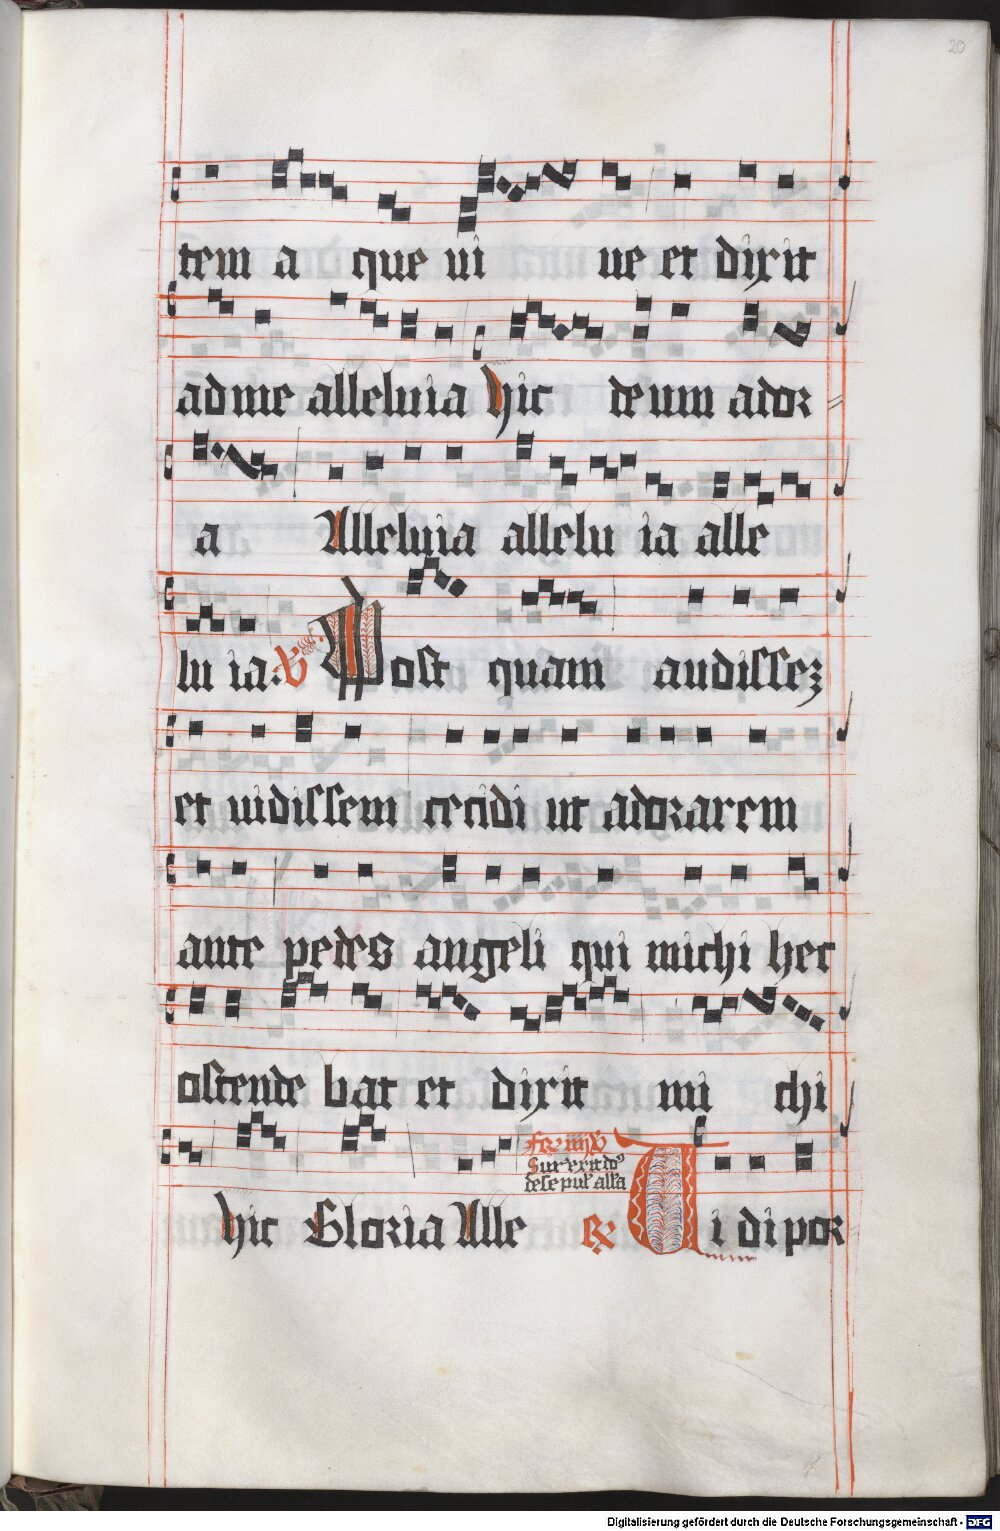 20
tem a que ui ue et dixit
ad me alleluia hic deum ador
a Alleluia allelu ia alle
lu ia. V Post quam audissez
et uidissem cecidi ut adorarem
ante pedes angeli qui michi hec
ostende bat et dixit mi chi
fer iiii V
Surrexit do
de sepul alla
hic Gloria Alle R Ui di por
Digitalisierung gefördert durch die Deutsche Forschungsgemeinschaft - DFG